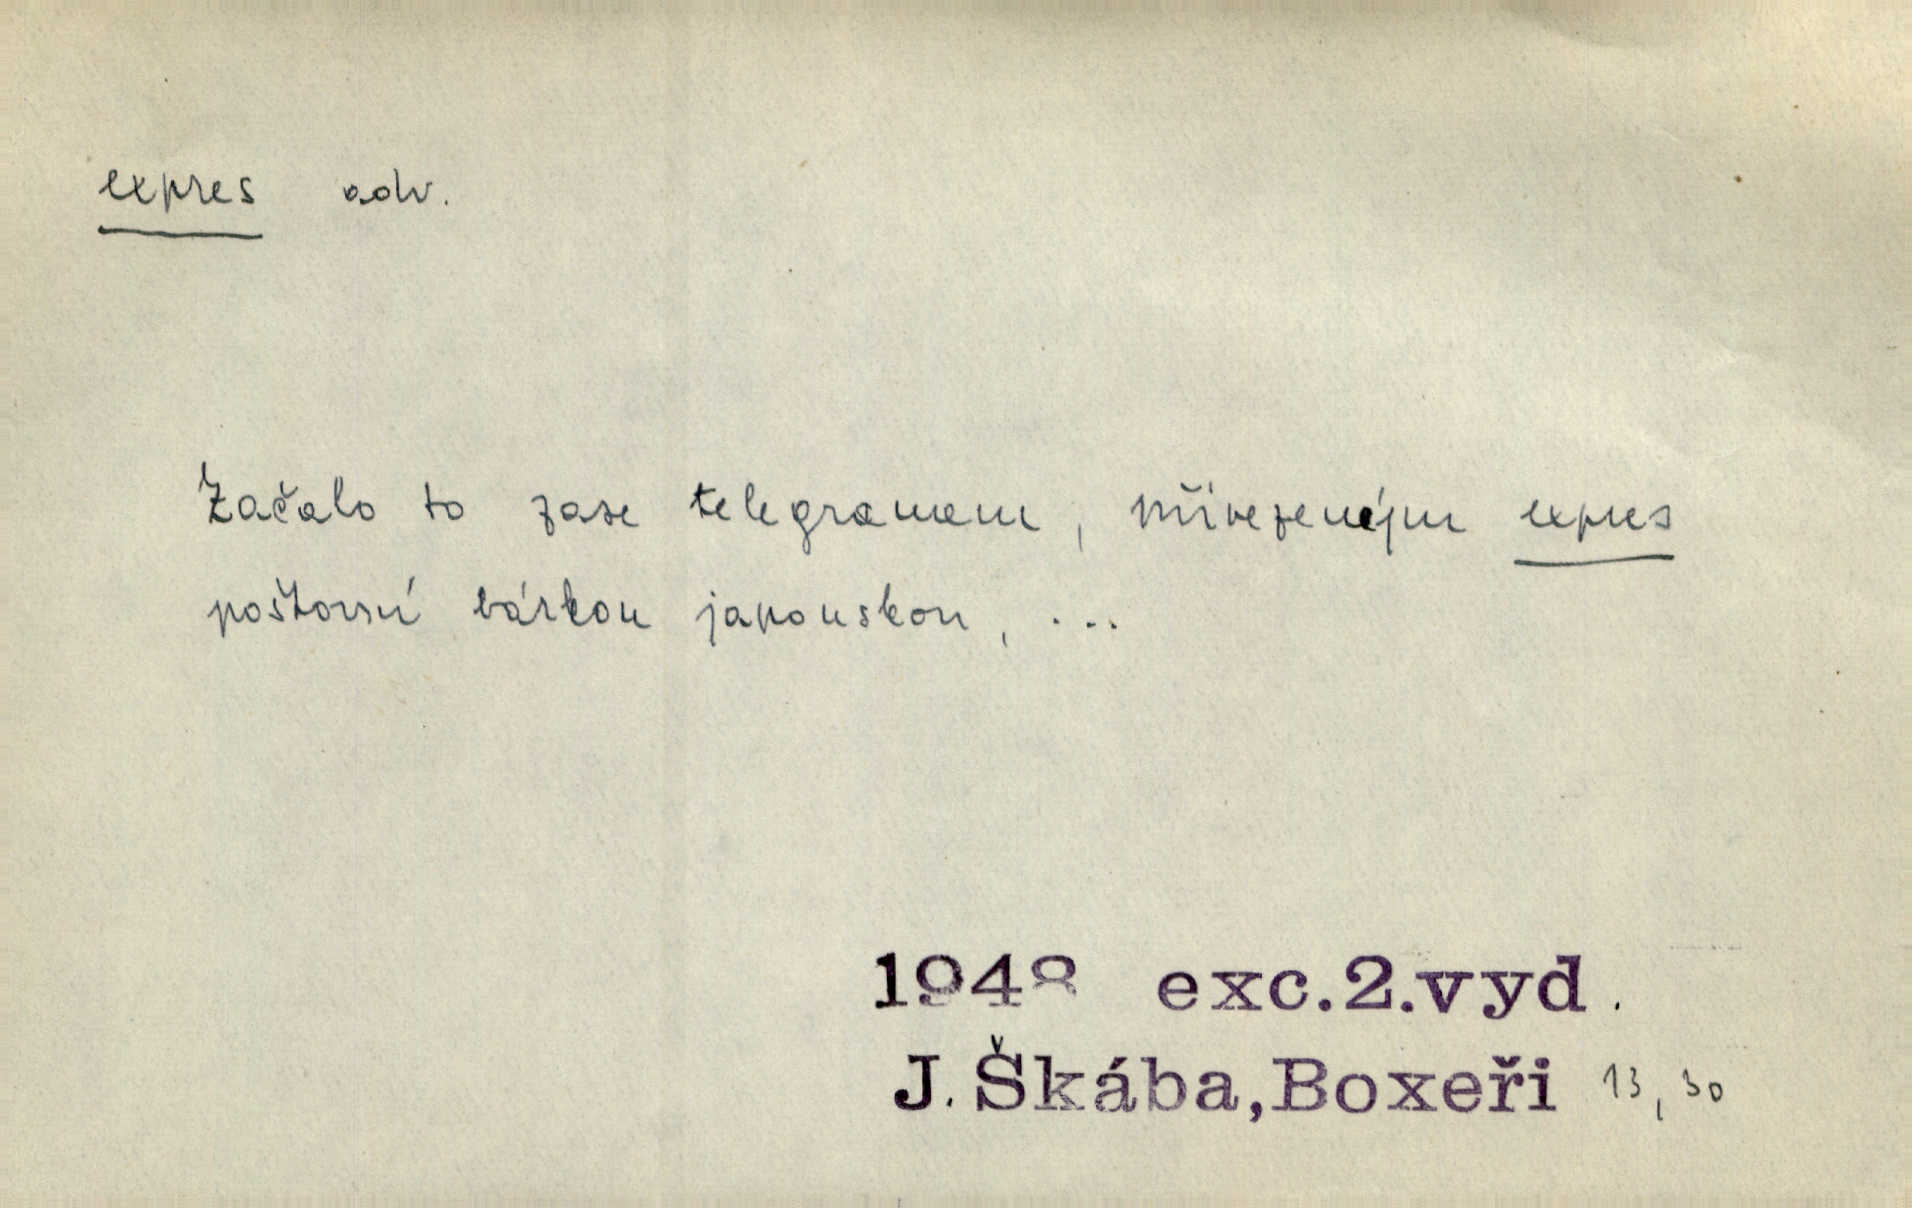 expres adv.
Začalo to zase telegramem, přivezeným expres
poštovní bárkou japonskou, ...
1948 exc.2.vyd.
J.Škába,Boxeři 13, 30